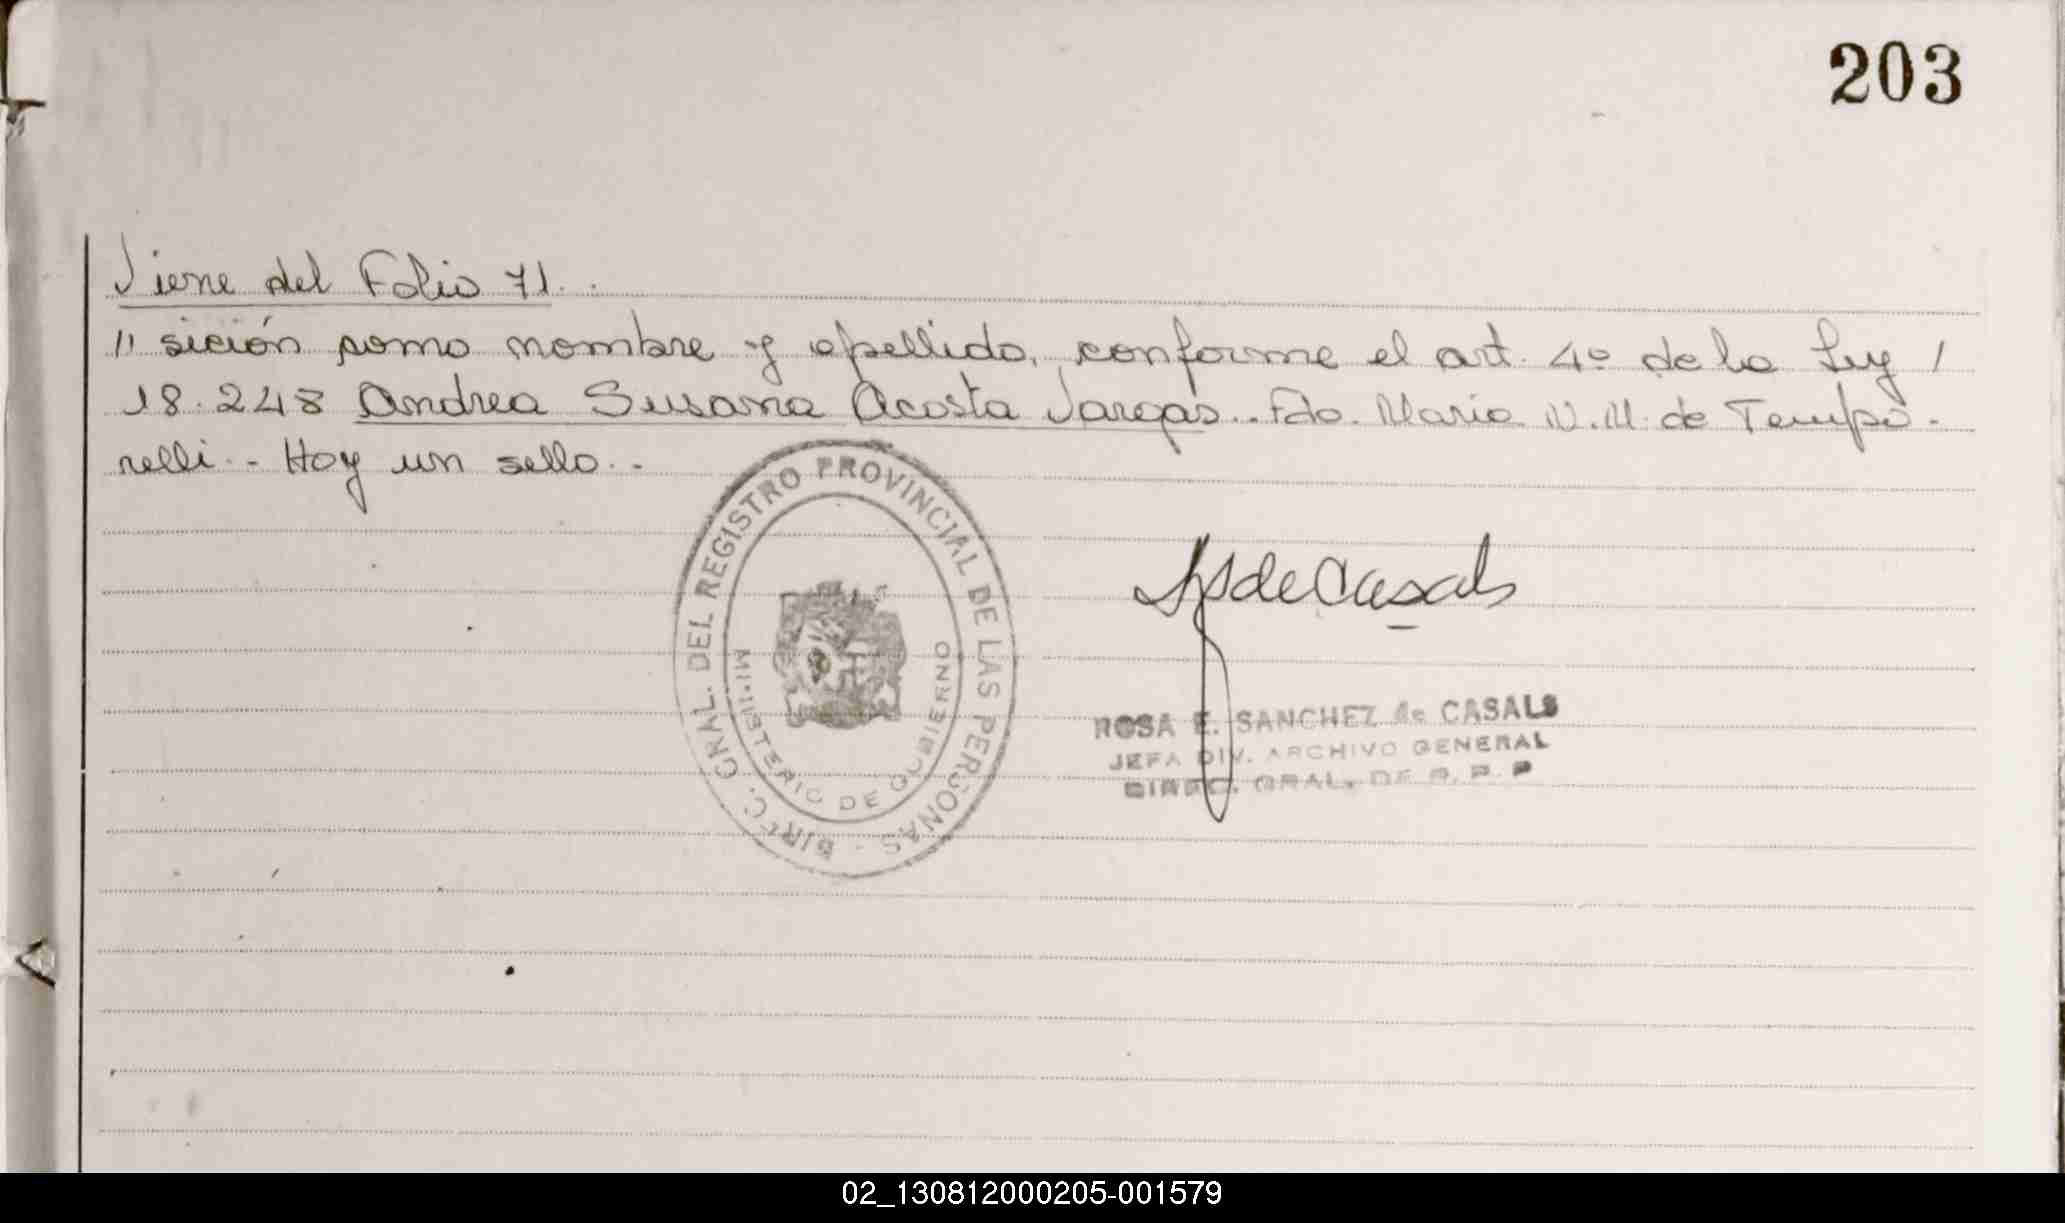 203
Viene del Folio 71..
// sición como nombre y apellido, conforme el art. 4º de la Ley /
18.248 Andrea Susana Acosta Vargas.. Fdo. Maria N.M. de Tempo-
relli.- Hay un sello.-
DIREC. GRAL. DEL REGISTRO PROVINCIAL DE LAS PERSONAS
MINISTERIO DE GOBIERNO
de Casals
ROSA E. SANCHEZ de CASALS
JEFA DIV. ARCHIVO GENERAL
DIREC. GRAL. DE R. P. P
02_130812000205-001579